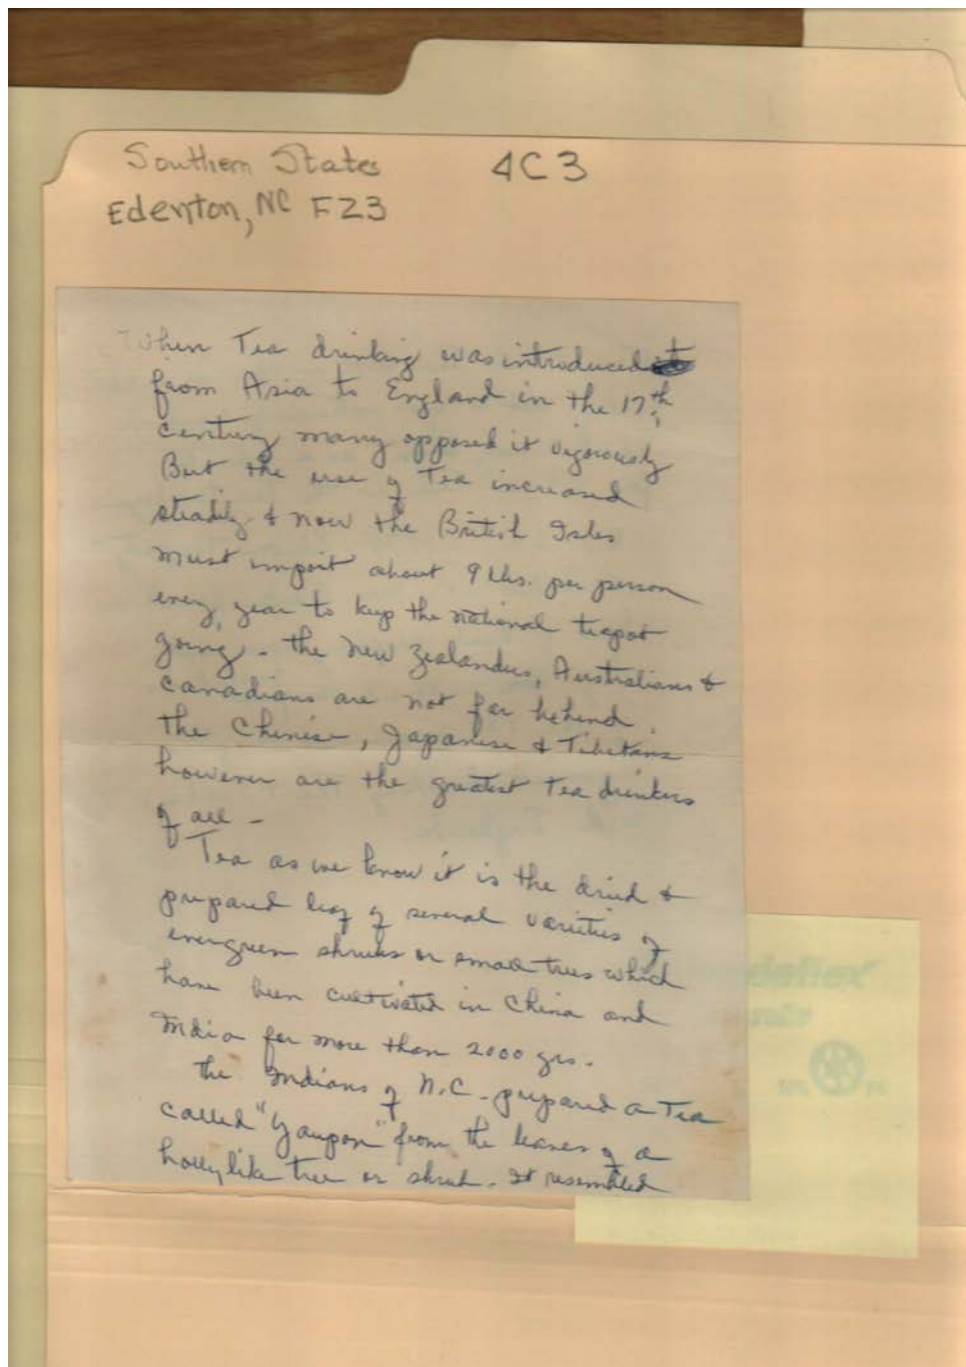 Southern States 4C3
Edenton, NC F23
When Tea drinking was introduced
from Asia to England in the 17th
century many opposed it vigorously
But the use of Tea increased
steadily & now the British Isles
must import about 9 lbs. per person
every year to keep the national teapot
going - the New Zealanders, Australians &
Canadians are not far behind.
The Chinese, Japanese & Tibetans
however are the greatest Tea drinkers
of all -
Tea as we know it is the dried &
prepared leaf of several varieties of
evergreen shrubs or small trees which
have been cultivated in China and
India for more than 2000 yrs.
The Indians of N.C. prepared a Tea
called "Yaupon" from the leaves of a
holly like tree or shrub. It resembled